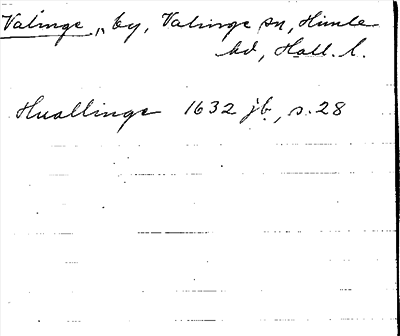 Valinge, by, Valinge sn, Himle
hd, Hall. l.
Huallinge 1632 jb, s. 28